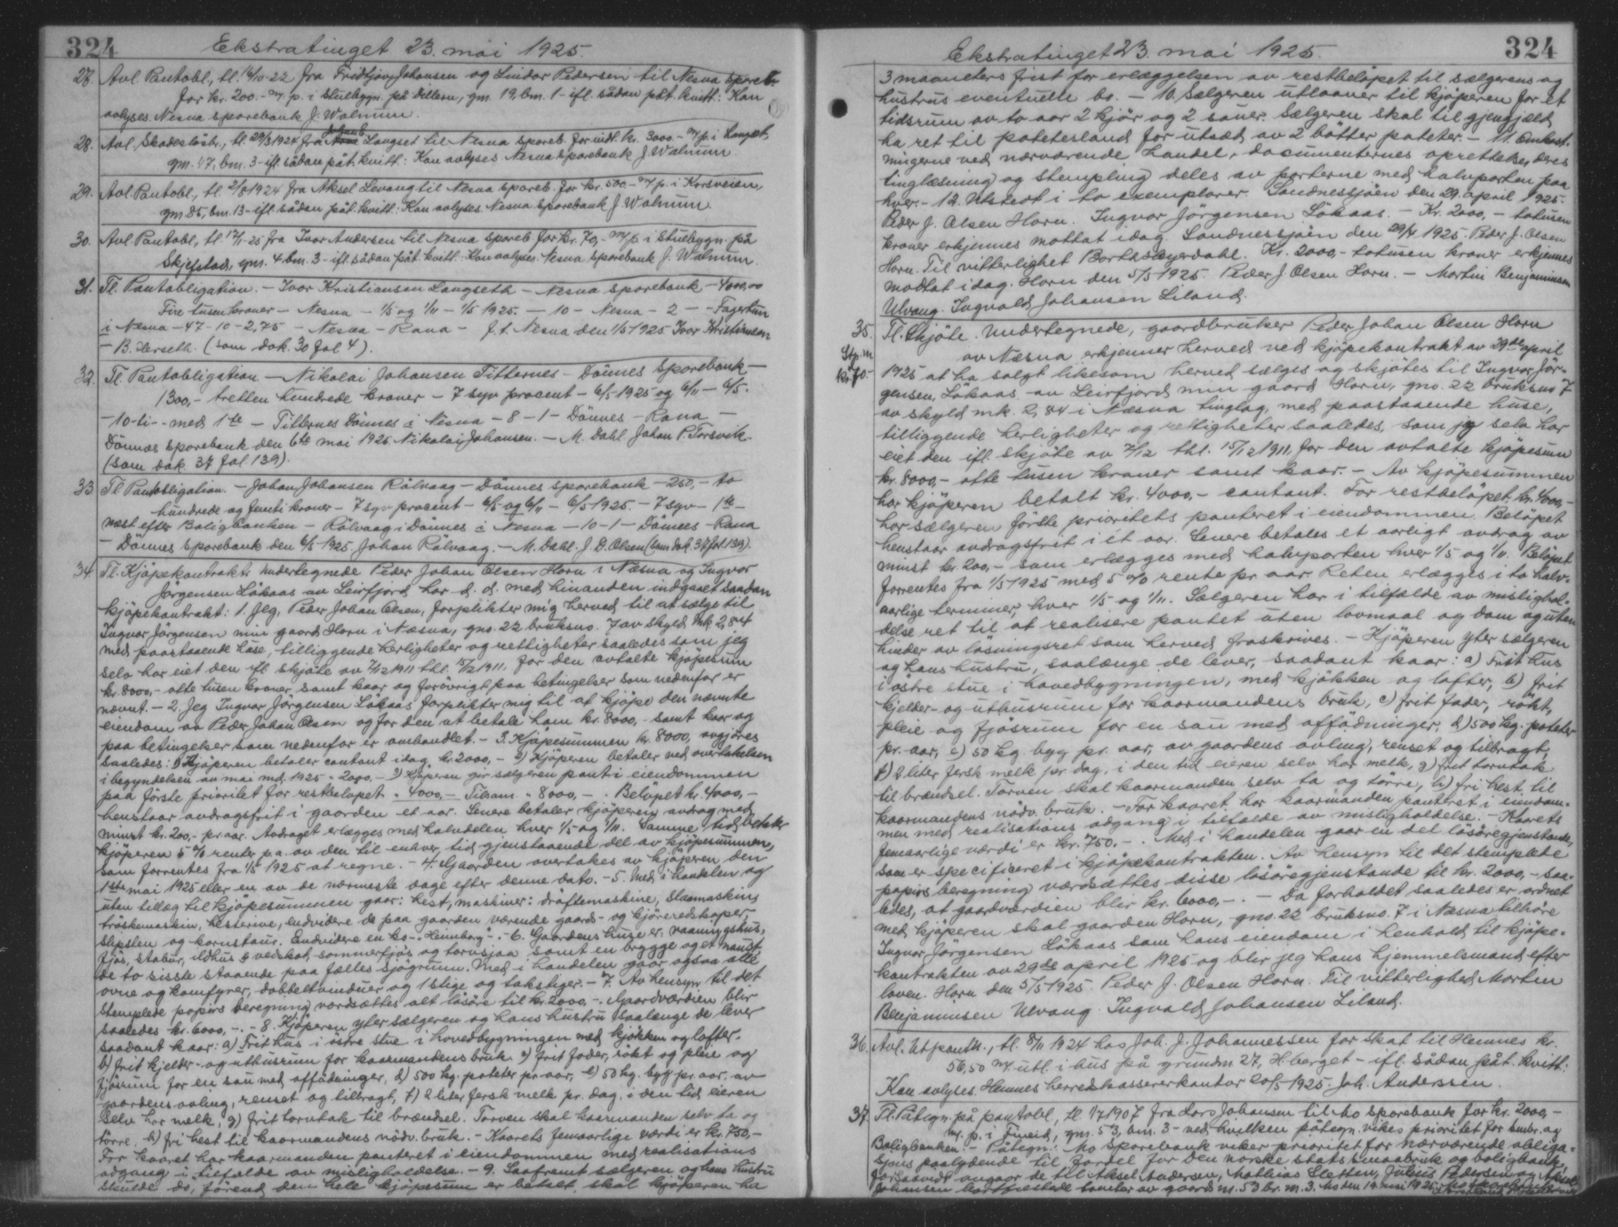 324 Ekstratinget 23. mai 1925.
27. Avl. Pantobl., tl. 14/10-22 fra Fridtjov Johansen og Lindor Pedersen til Nesna Spareb.
for kr. 200.- m/p. i Stuebygn. på Dillern, gm. 19, bm. 1 - ifl. sådan påt. kvitt: Kan
avlyses. Nesna sparebank J. Walnum.
28. Avl. Skadeslöst., tl. 29/3 1924 fra Langset til Nesna Spareb. for indtl. kr. 3000.- m/p. i Langset,
gm. 47, bm. 3 - ifl. sådan påt. kvitt: Kan avlyses Nesna Sparebank J. Walnum
29. Avl. Pantobl., tl. 2/8 1924 fra Aksel Levang til Nesna spareb. for kr. 500.- m/p. i Korsveien,
gm. 85, bm. 13 - ifl. sådan påt. kvitt: Kan avlyses. Nesna Sparebank J. Walnum.
30. Avl. Pantobl., tl. 17/1-25 fra Ivar Andersen til Nesna spareb. for kr. 70,- m/p. i Stuebygn. på
Skjefstad, gm. 4 bm. 3 - ifl. sådan påt. kvitt: Kan avlyses. Nesna Sparebank J. Walnum.
31. Tl. Pantobligation. - Ivar Kristiansen Langseth - Nesna Sparebank - 4000,00
Fire tusen kroner - Nesna - 1/5 og 1/11 - 1/5 1925. - 10 - Nesna - 2 - - Fagertun
i Nesna - 47 - 10 - 2,75 - Nesna - Rana - f.t. Nesna den 1/5 1925 Ivar Kristiansen
- B. Zerseth. (som dok. 30 fol 4).
32. Tl. Pantobligation - Nikolai Johansen Titternes - Dönnes Sparebank -
1300,- tretten hundrede kroner - 7 syv procent - 6/5 1925 og 6/11 - 6/5.
- 10 - ti - - med 1ste - Titternes Dönnes i Nesna - 8 - 1 - Dönnes - Rana -
Dönnes sparebank den 6te mai 1925 Nikolai Johansen. - M. Dahl Johan P. Torsvik.
(som dok 37 fol 139).
33. Tl. Pantobligation. - Johan Johansen Rölvaag - Dönnes sparebank - 250,- to
hundrede og femti kroner - 7 syv procent - 6/5 og 6/11 - 6/5 1925 - 7 syv - 1ste -
næst efter Boligbanken - Rölvaag i Dönnes i Nesna - 10 - 1 - Dönnes - Rana
- Dönnes sparebank den 6/5 1925 Johan Rölvaag. - M. Dahl. J. D. Olsen (som dok 37 fol 139).
34. Tl. Kjöpekontrakt. Undertegnede Peder Johan Olsen Horn i Næsna og Ingvor
Jörgensen Lökaas av Leirfjord har d. d. med hinanden indgaaet saadan
kjöpekontrakt: 1. Jeg, Peder Johan Olsen, forplikter mig herved til at sælge til
Ingvor Jörgensen min gaard Horn i Næsna, gno. 22 bruksno. 7 av skyld mk 2,84
med paastaaende huse, tilliggende herligheter og rettigheter saaledes som jeg
selv har eiet den ifl. skjöte av 7/12 1911 thl. 15/12 1911. for den avtalte kjöpesum
kr. 8000,- otte tusen kroner, samt kaar og forövrigt paa betingelser som nedenfor er
nævnt. - 2. Jeg Ingvor Jörgensen Lökaas forplikter mig til at kjöpe den nævnte
eiendom av Peder Johan Olsen og for den at betale ham kr. 8000,- samt kaar og
paa betingelser som nedenfor er omhandlet. - 3. Kjöpesummen kr. 8000, avgjöres
saaledes: 1) Kjöperen betaler contant idag kr. 2000,- 2) Kjöperen betaler ved overtakelsen
i begyndelsen av mai md. 1925 - 2000.- 3) Kjöperen gir sælgeren pant i eiendommen
paa förste prioritet for restbelöpet " 4000,- Tilsam. " 8000,- . Belöpet kr. 4000,-
henstaar avdragsfrit i gaarden et aar. Senere betaler kjöperen avdrag med
minst kr. 200.- pr. aar. Avdraget erlægges med halvdelen hver 1/5 og 1/11. Samme tid betaler
kjöperen 5 % renter p.a. av den til enhver tid gjenstaaende del av kjöpesummen,
som forrentes fra 1/5 1925 at regne. - 4. Gaarden overtakes av kjöperen den
1ste mai 1925 eller en av de nærmeste dage efter denne dato. - 5. Med i handelen og
uten tillæg til kjöpesummen gaar: hest, maskiner: dröftemaskine, slaamaskine
tröskemaskin, hesterive, endvidere de paa gaarden værende gaards- og kjöreredskaper,
slepslen og kornstaur. Endvidere en ko - "Heimborg". - 6. Gaardens huse er, vaaningshus,
fjös, stabur, ildhus & vedskot, sommerfjös og torvsjaa samt en brygge og et naust
de to sisste staaende paa fælles sjögrunn. Med i handelen gaar ogsaa alle
ovne og komfyrer, dobbeltvinduer og 1 stige og takstiger. - 7. Av hensyn til det
stemplede papirs beregning værdsættes alt lösöre til kr. 2000,-. Gaardværdien blir
saaledes kr. 6000,-. - 8. Kjöperen yter sælgeren og hans hustru saalænge de lever
saadant kaar: a) Frit hus i östre stue i hovedbygningen med kjökken og lofter.
b) frit kjelder- og uthusrum for kaarmandens bruk c) frit foder, rökt og pleie og
fjösrum for en sau med affödninger, d) 500 kg. poteter pr. aar, e) 50 kg. byg pr. aar, av
gaardens avling, renset og tilbragt, f) 2 liter fersk melk pr. dag, i den tid eieren
selv har melk, g) frit torvtak til brændsel. Torven skal kaarmanden selv ta og
tørre, h) fri hest til kaarmandens nödv. bruk. - Kaarets femaarlige værdi er kr. 750,-
For kaaret har kaarmanden panteret i eiendommen med realisations
adgang i tilfælde av misligholdelse. - 9. Saafremt sælgeren og hans hustru
skulde dö, förend den hele kjöpesum er betalt skal kjöperen ha
Ekstratinget 23. mai 1925. 324
3 maaneters frist for erlæggelsen av restbelöpet til sælgerens og
hustrus eventuelle bo. - 10. Sælgeren utlaaner til kjöperen for et
tidsrum av to aar 2 kjör og 2 sauer. Sælgeren skal til gjengjæld
ha ret til poteterland for utsæd av 2 bötter poteter. - 11. Omkost-
ningerne ved nærværende handel, documenternes oprettelse, deres
tinglæsning og stempling deles av parterne med halvparten paa
hver. - 12. Utstedt i to exemplarer. Sandnessjöen den 29. april 1925.
Peder J. Olsen Horn. Ingvor Jörgensen Lökaas. - Kr. 2000,- totusen
kroner erkjennes mottat idag. Sandnessjöen den 29/4 1925. Peder J. Olsen
Horn. Til vitterlighet Borth. Kr. 2000,- totusen kroner erkjennes
mottat idag. Horn den 5/5 1925. Peder J. Olsen Horn. - Mortin Benjaminsen
Ulvang. Ingvald Johansen Liland.
35. Tl. Skjöte. Undertegnede, gaardbruker Peder Johan Olsen Horn
Stp. m. av Næsna erkjenner herved ved kjöpekontrakt av 29de april
kr. 70.- 1925 at ha solgt likesom herved sælges og skjötes til Ingvor Jör-
gensen Lökaas av Leirfjord min gaard Horn, gno. 22 bruksno 7
av skyld mk. 2,84 i Næsna tinglag, med paastaaende huse,
tilliggende herligheter og rettigheter saaledes, som jeg selv har
eiet den ifl. skjöte av 7/12 thl. 15/12 1911. for den avtalte kjöpesum
kr. 8000,- otte tusen kroner samt kaar. - Av kjöpesummen
har kjöperen betalt kr. 4000,- contant. For restbelöpet, kr. 4000,-
har sælgeren förste prioritets panteret i eiendommen. Belöpet
henstaar avdragsfrit i et aar. Senere betales et aarligt avdrag av
minst kr. 200,- som erlægges med halvparten hver 1/5 og 1/11. Belöpet
forrentes fra 1/5 1925 med 5 % rente pr. aar. Renten erlægges i to halv-
aarlige terminer hver 1/5 og 1/11. Sælgeren har i tilfælde av mislighol-
delse ret til at realisere pantet uten lovmaal og dom og uten
hinder av lösningsret som herved fraskrives. - Kjöperen yter sælgeren
og hans hustru, saalænge de lever, saadant kaar: a) Frit hus
i östre stue i hovedbygningen, med kjökken og lofter, b) frit
kjelder- og uthusrum for kaarmandens bruk, c) frit foder, rökt,
pleie og fjösrum for en sau med affödninger, d) 500 kg. poteter
pr. aar, e) 50 kg. byg pr. aar, av gaardens avling, renset og tilbragt,
f) 2 liter fersk melk pr. dag, i den tid eieren selv har melk, g) frit torvtak
til brændsel. Torven skal kaarmanden selv ta og törre, h) fri hest til
kaarmandens nödv. bruk. - For kaaret har kaarmanden panteret i eiendom-
men med realisations adgang i tilfælde av misligholdelse. - Kaarets
femaarlige værdi er kr. 750.- . Med i handelen gaar en del lösöregjenstande,
som er specificeret i kjöpekontrakten. Av hensyn til det stemplede
papirs beregning værdsættes disse lösöregjenstande til kr. 2000,- saa-
ledes, at gaardværdien blir kr. 6000,-. - Da forholdet saaledes er ordnet
med kjöperen skal gaarden Horn, gno. 22 bruksno. 7 i Næsna tilhöre
Ingvor Jörgensen Lökaas som hans eiendom i henhold til kjöpe-
kontrakten av 29de april 1925 og blir jeg hans hjemmelsmand efter
loven. Horn den 5/5 1925. Peder J. Olsen Horn. Til vitterlighed Mortin
Benjaminsen Ulvang. Ingvald Johansen Liland.
36. Avl. Utpantn., tl. 8/11 1924 hos Joh. J. Johannessen for skat til Hemnes kr.
56,50 m/utl. i hus på grundn. 27, H.berget - ifl. sådan påt. kvitt:
Kan avlyses. Hemnes herredskassererkontor 20/5 1925. Joh. Anderssen.
37. Tl. Påtegn. på pantobl., tl. 1/7 1907 fra Lars Johansen til Mo Sparebank for kr. 2000,-
m/p. i Fineid, gm. 53, bm. 3 - ved hvilken påtegn. vikes prioritet for Småbr. og
Boligbanken: - Påtegn: Mo Sparebank viker prioritet for nærværende obliga-
tions paalydende til fordel for Den norske stats smaabruk og boligbank,
forsaavidt angaar de til Aksel Andersen, Mathias Sletten, Julius Pedersen og Aksel
Johansen bortfæstede tomter av gaards n. 53 br. n. 3. Mo den 14. mai 1925. Mo Sparebank